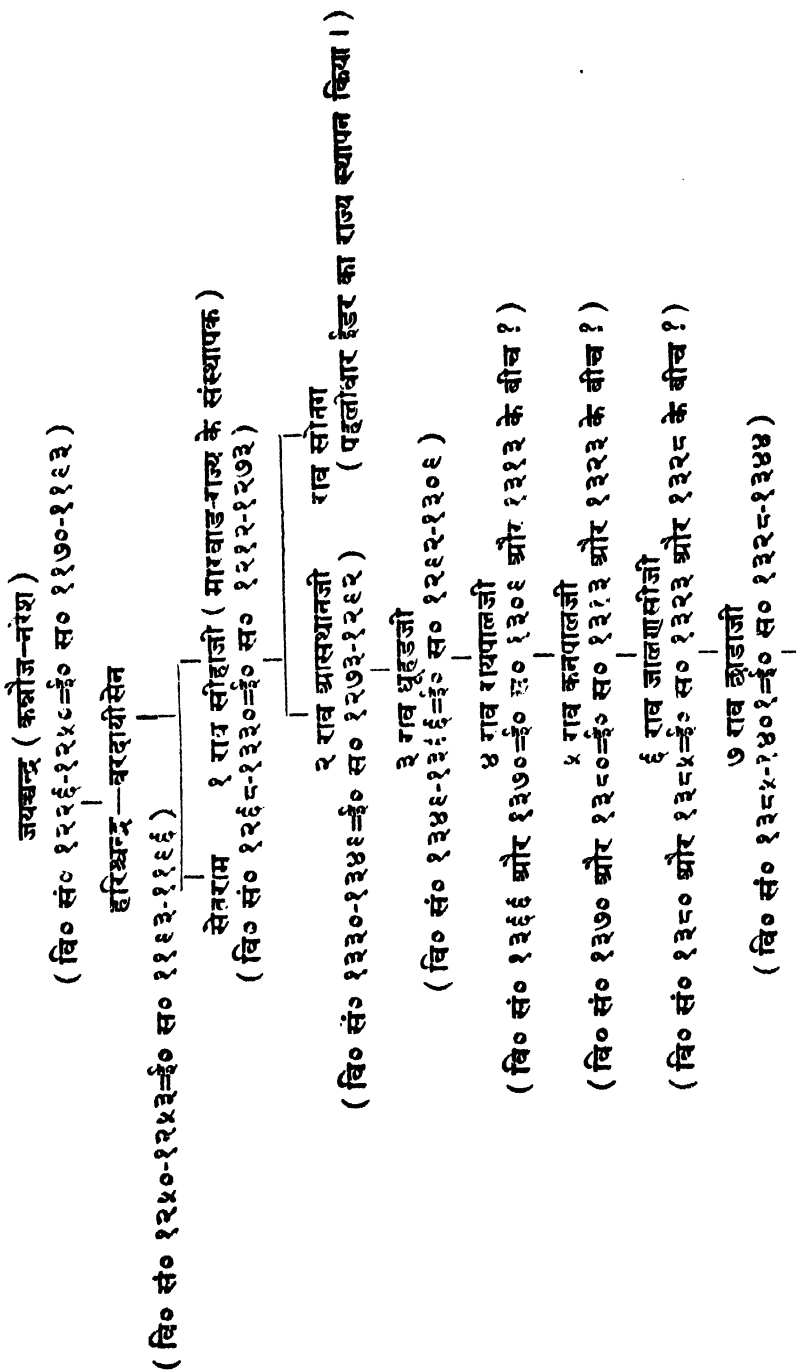 जयच्चन्द्र ( कन्नौज-नरेश )
( वि० सं० १२२६-१२५०=ई० स० ११७०-११९३
हरिश्चन्द्र—वरदायीसेन
( वि० सं० १२५०-१२५३=ई० स० ११९३-११९६ )
सेतराम १ राव सीहाजी ( मारवाड-राज्य के संस्थापक )
( वि० सं० १२६८-१३३०=ई० स० १२१२-१२७३ )
२ राव आसथानजी राव सोनग
( वि० सं० १३३०-१३४९=ई० स० १२७३-१२९२ ) ( पहलीवार ईडर का राज्य स्थापन किया । )
३ राव धूहडजी
( वि० सं० १३४९-१३६६=ई० स० १२९२-१३०९ )
४ राव रायपालजी
( वि० सं० १३६६ और १३७०=ई० स० १३०९ और १३१३ के बीच ? )
५ राव कनपालजी
( वि० सं० १३७० और १३८०=ई० स० १३१३ और १३२३ के बीच ? )
६ राव जालणसीजी
( वि० सं० १३८० और १३८५=ई० स० १३२३ और १३२८ के बीच ? )
७ राव छाडाजी
( वि० सं० १३८५-१४०१=ई० स० १३२८-१३४४ )